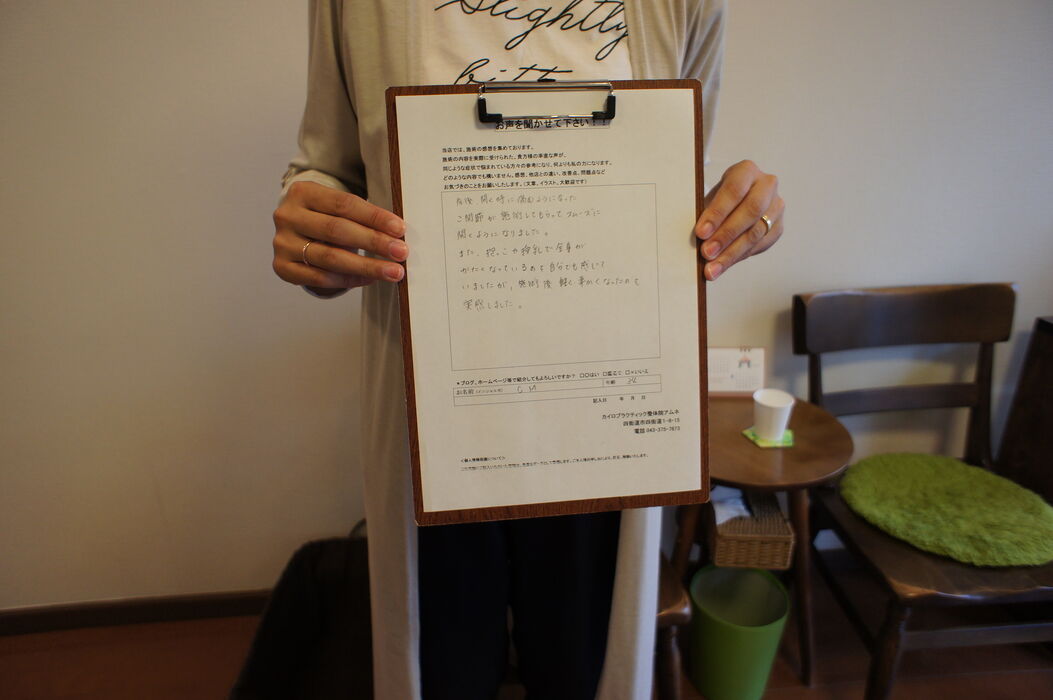 Slightly
bitt
お声を聞かせて下さい！！
当店では、施術の感想を集めております。
施術の内容を実際に受けられた、貴方様の率直な声が、
同じような症状で悩まれている方々の参考になり、何よりも私の力になります。
どのような内容でも構いません。感想、他店との違い、改善点、問題点など
お気づきのことをお願いしたします。（文章、イラスト、大歓迎です）
産後、開く時に痛むようになった
こ関節が施術してもらってスムーズに
開くようになりました。
また、抱っこや授乳で全身が
かたくなっているのを自分でも感じて
いましたが、施術後軽く柔かくなったのを
実感しました。
★ブログ、ホームページ等で紹介してもよろしいですか？ □○はい □匿名で □×いいえ
お名前（イニシャル可） 年齢
記入日 年 月 日
カイロプラクティック整体院アムネ
四街道市四街道1-8-15
電話 043-375-7673
＜個人情報保護について＞